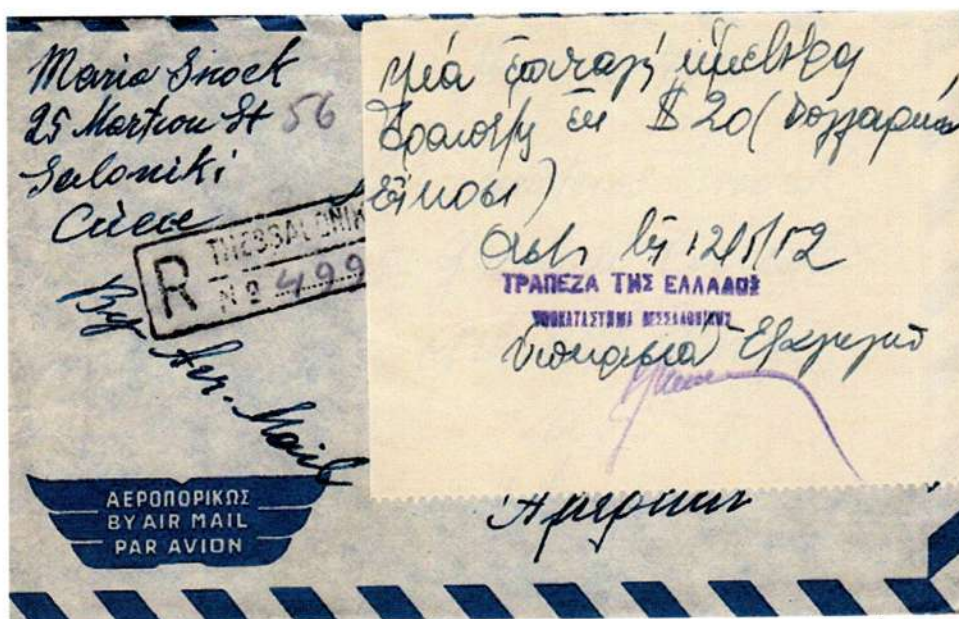 Maria Snock
25 Martiou St 56
Saloniki
Grece
R THESSALONIK
Nº 499
By Aer. Mail
ΑΕΡΟΠΟΡΙΚΩΣ
BY AIR MAIL
PAR AVION
Μία ἐπιταγή ἡμετέρα
ἐκ $ 20 (δολλαρίων
εἴκοσι)
12/5/52
ΤΡΑΠΕΖΑ ΤΗΣ ΕΛΛΑΔΟΣ
ΥΠΟΚΑΤΑΣΤΗΜΑ ΘΕΣΣΑΛΟΝΙΚΗΣ
Ὑπηρεσία
Ἀμερικήν